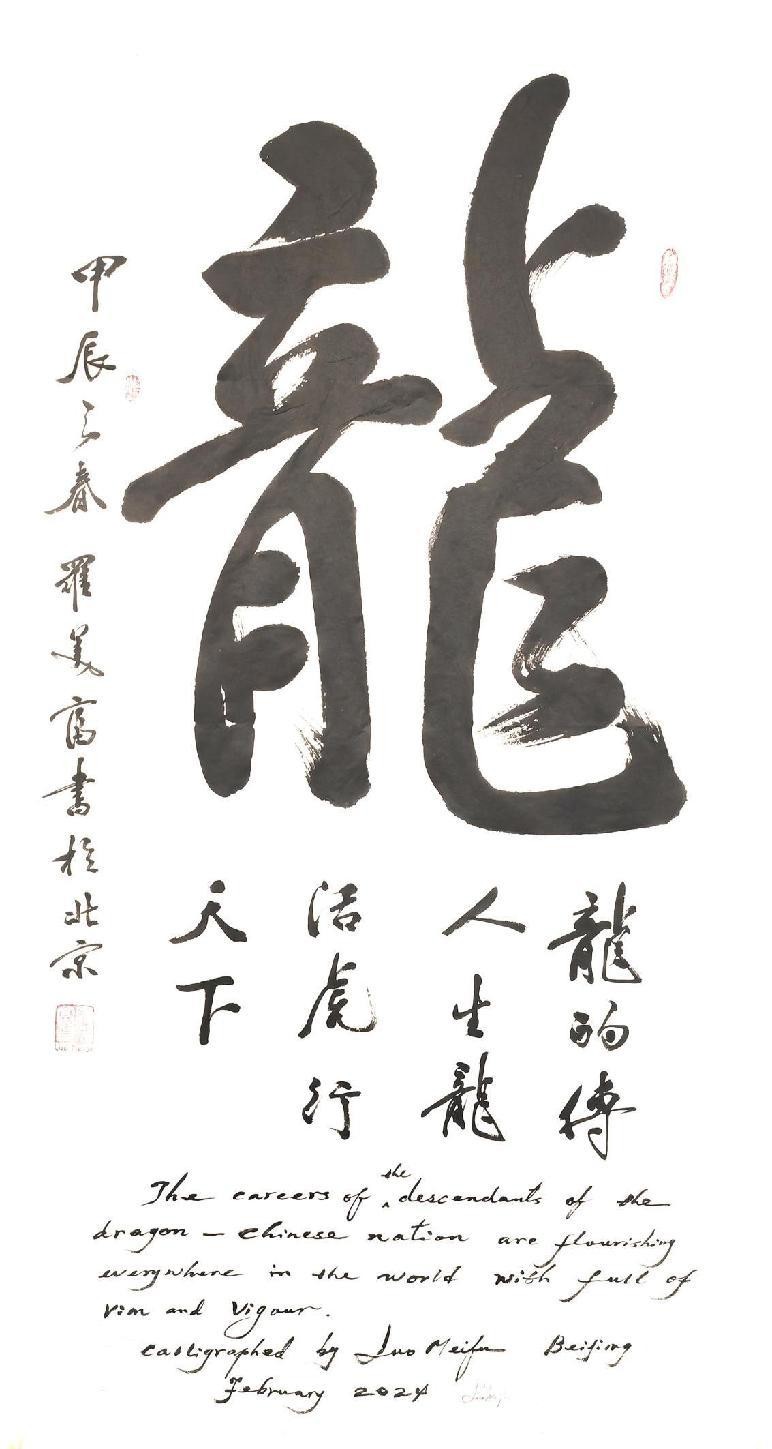 龍
龍的傳
人生龍
活虎行
天下
甲辰之春 羅美富書於北京
The careers of the descendants of the
dragon – Chinese nation are flourishing
everywhere in the world with full of
vim and vigour.
calligraphed by Luo Meifu Beijing
February 2024